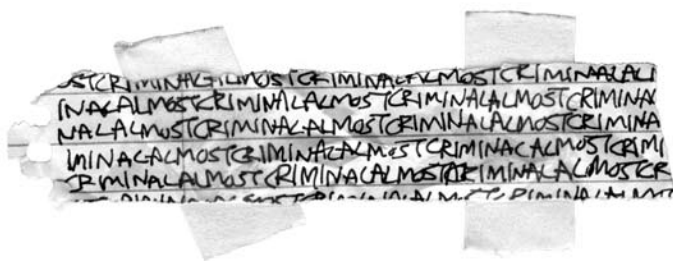 OSTCRIMINALALMOSTCRIMINALALMOSTCRIMINALALI
INALALMOSTCRIMINALALMOSTCRIMINALALMOSTCRIMINA
NALALMOSTCRIMINALALMOSTCRIMINALALMOSTCRIMINA
IMINALALMOSTCRIMINALALMOSTCRIMINALALMOSTCRIMI
CRIMINALALMOSTCRIMINALALMOSTCRIMINALALMOSTCR